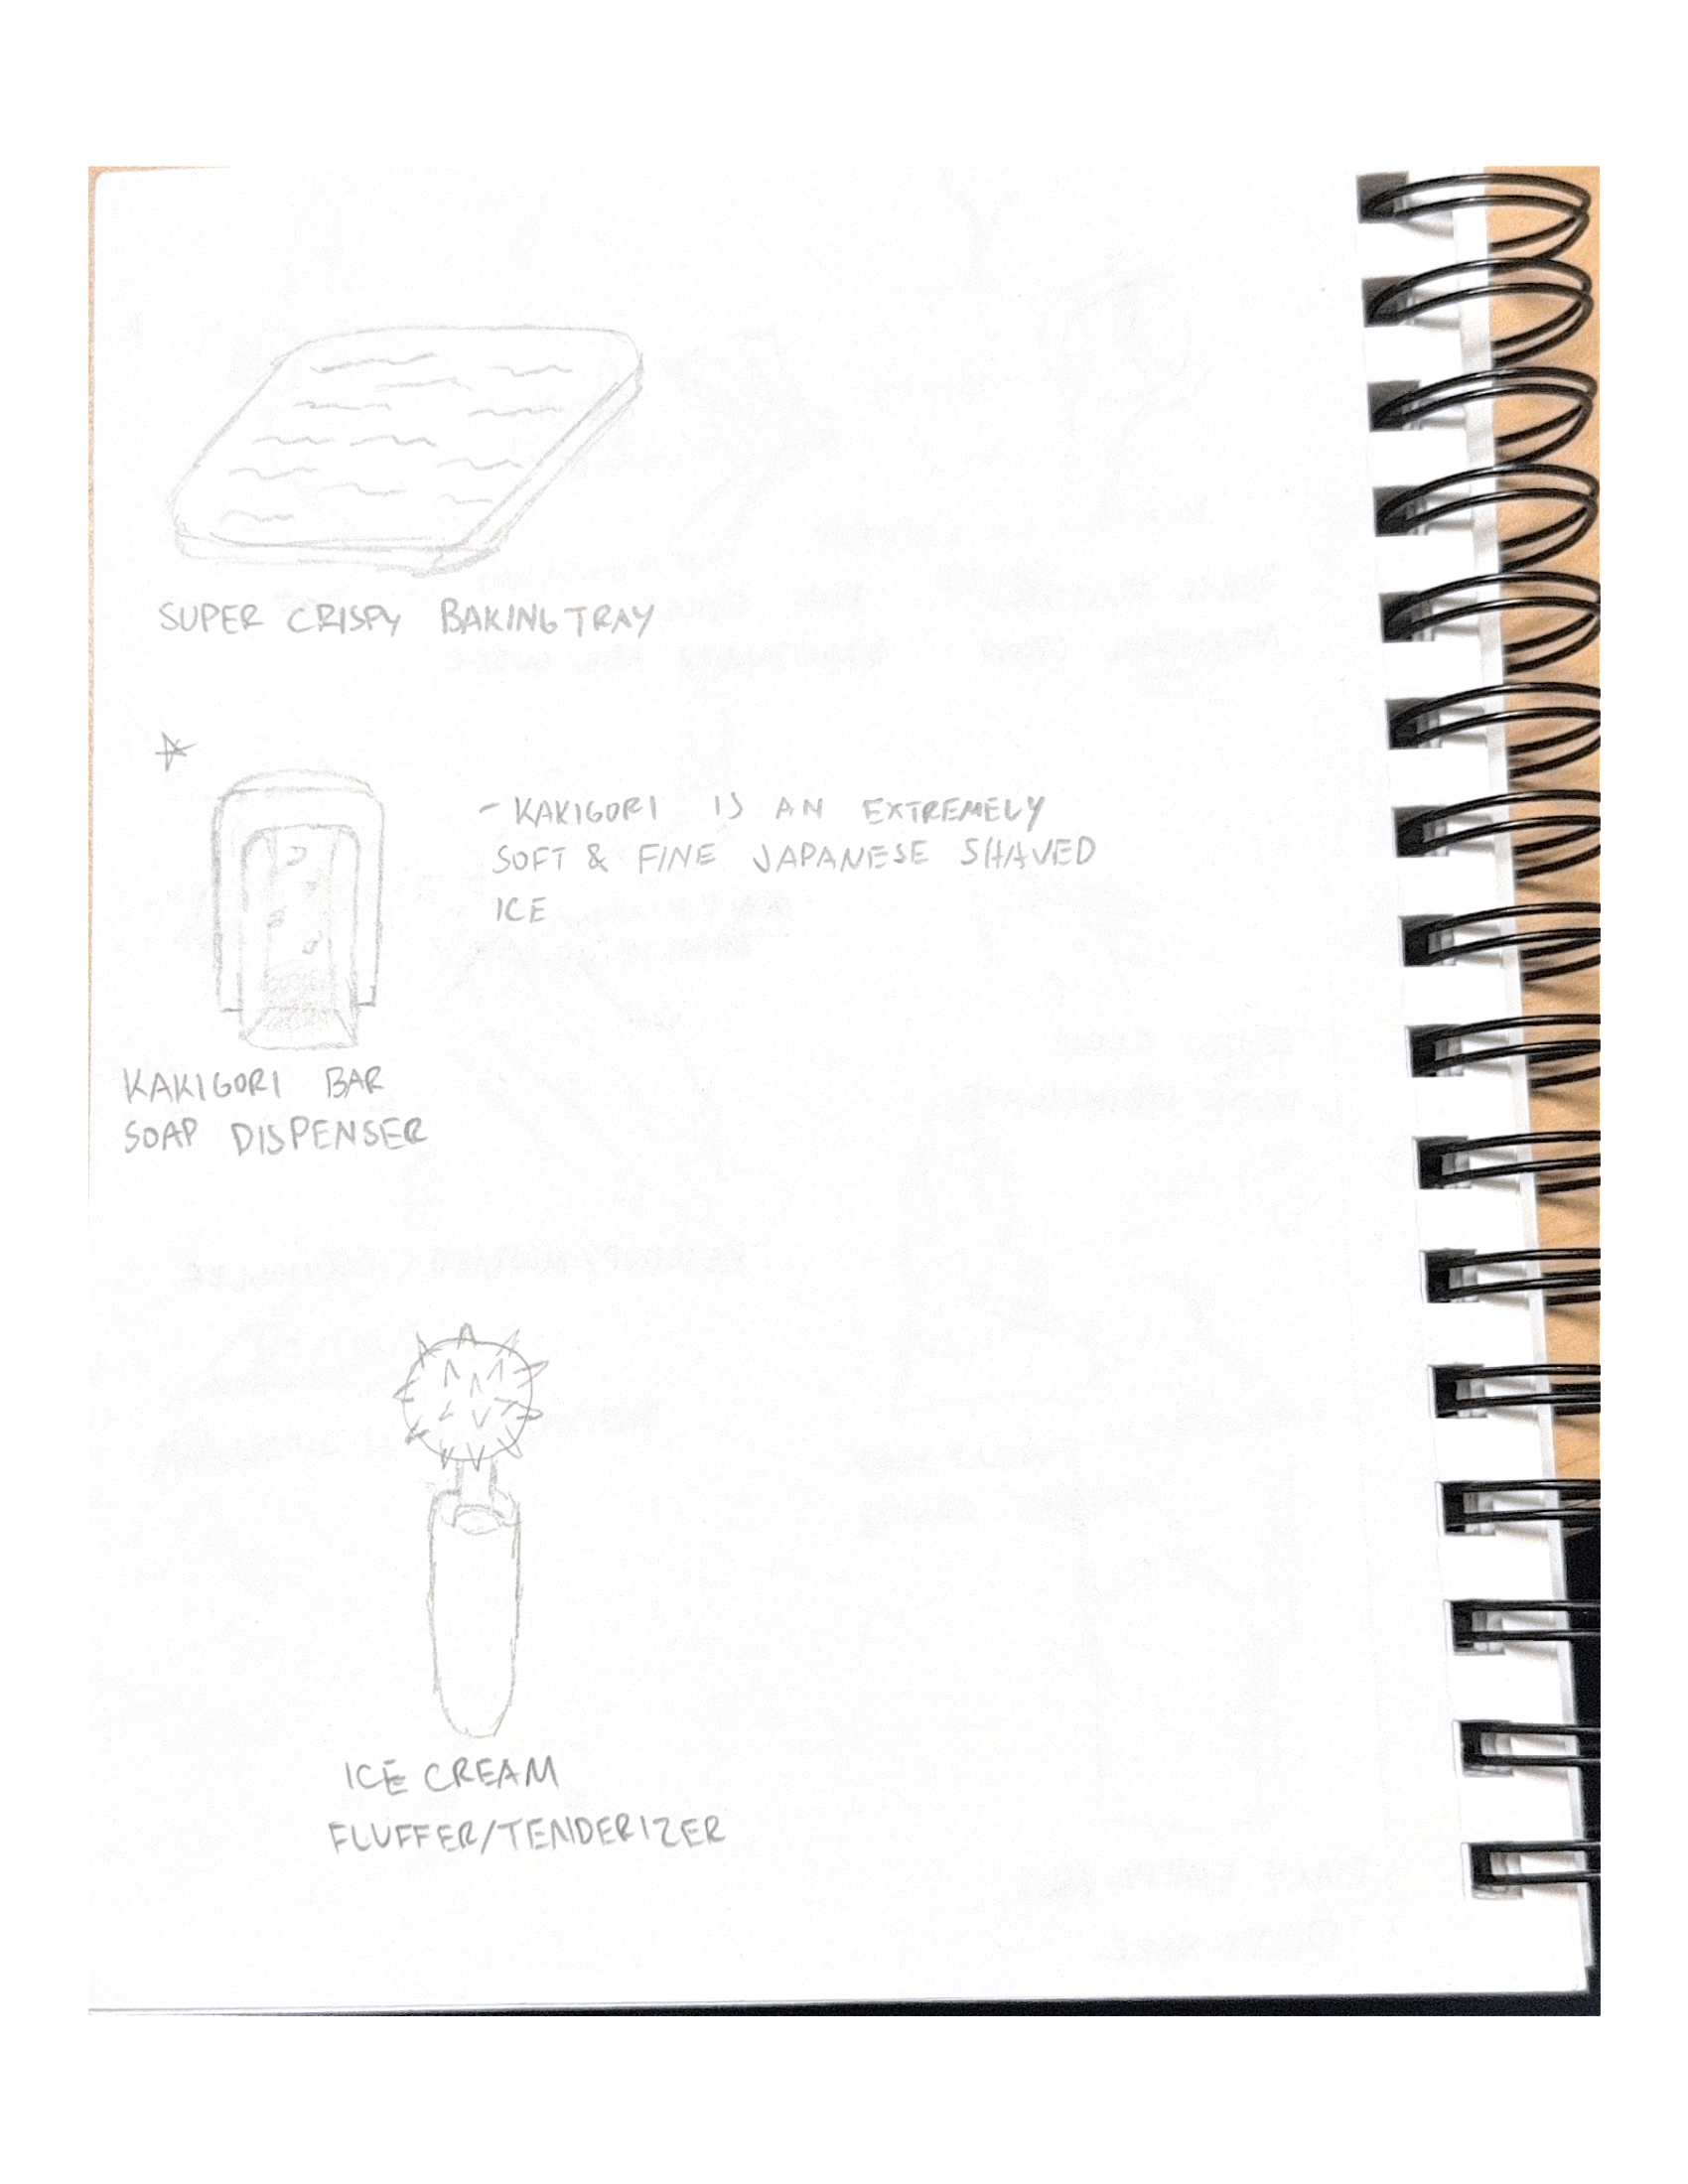 SUPER CRISPY BAKING TRAY
- KAKIGORI IS AN EXTREMELY
SOFT & FINE JAPANESE SHAVED
ICE
KAKIGORI BAR
SOAP DISPENSER
ICE CREAM
FLUFFER/TENDERIZER